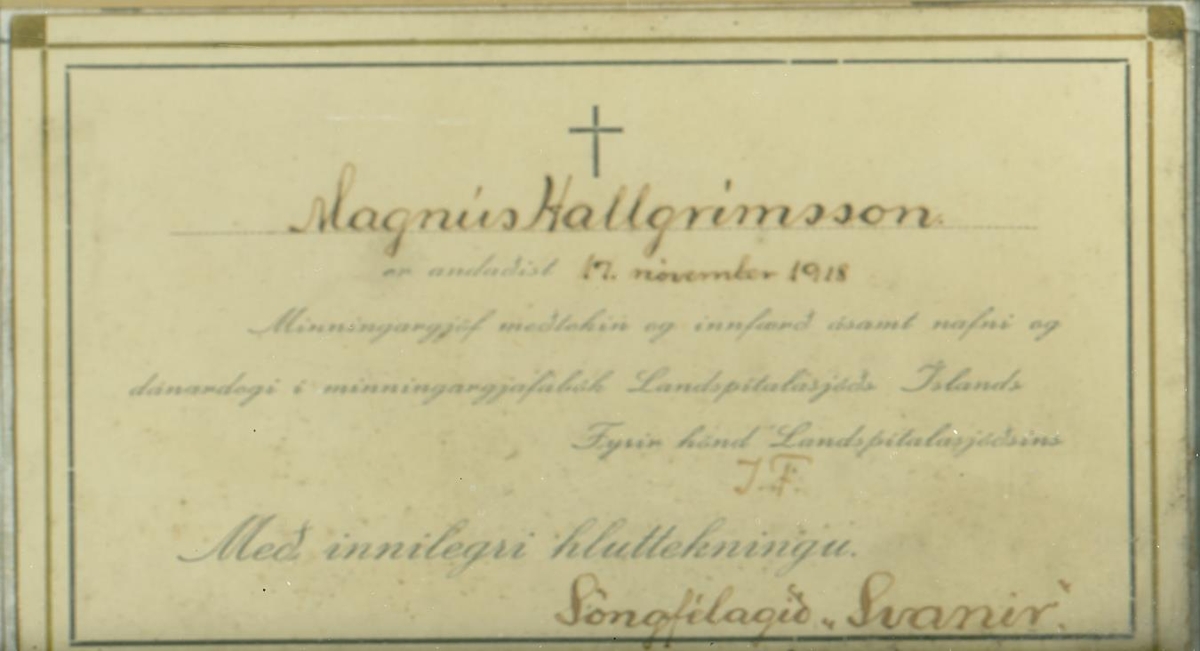 Magnús Hallgrímsson.
er andaðist 17. nóvember 1918
Minningargjöf meðtekin og innfærð ásamt nafni og
dánardegi í minningargjafabók Landspítalasjóðs Íslands
Fyrir hönd Landspítalasjóðsins
I. F.
Með innilegri hluttekningu.
Söngfélagið „Svanir“.